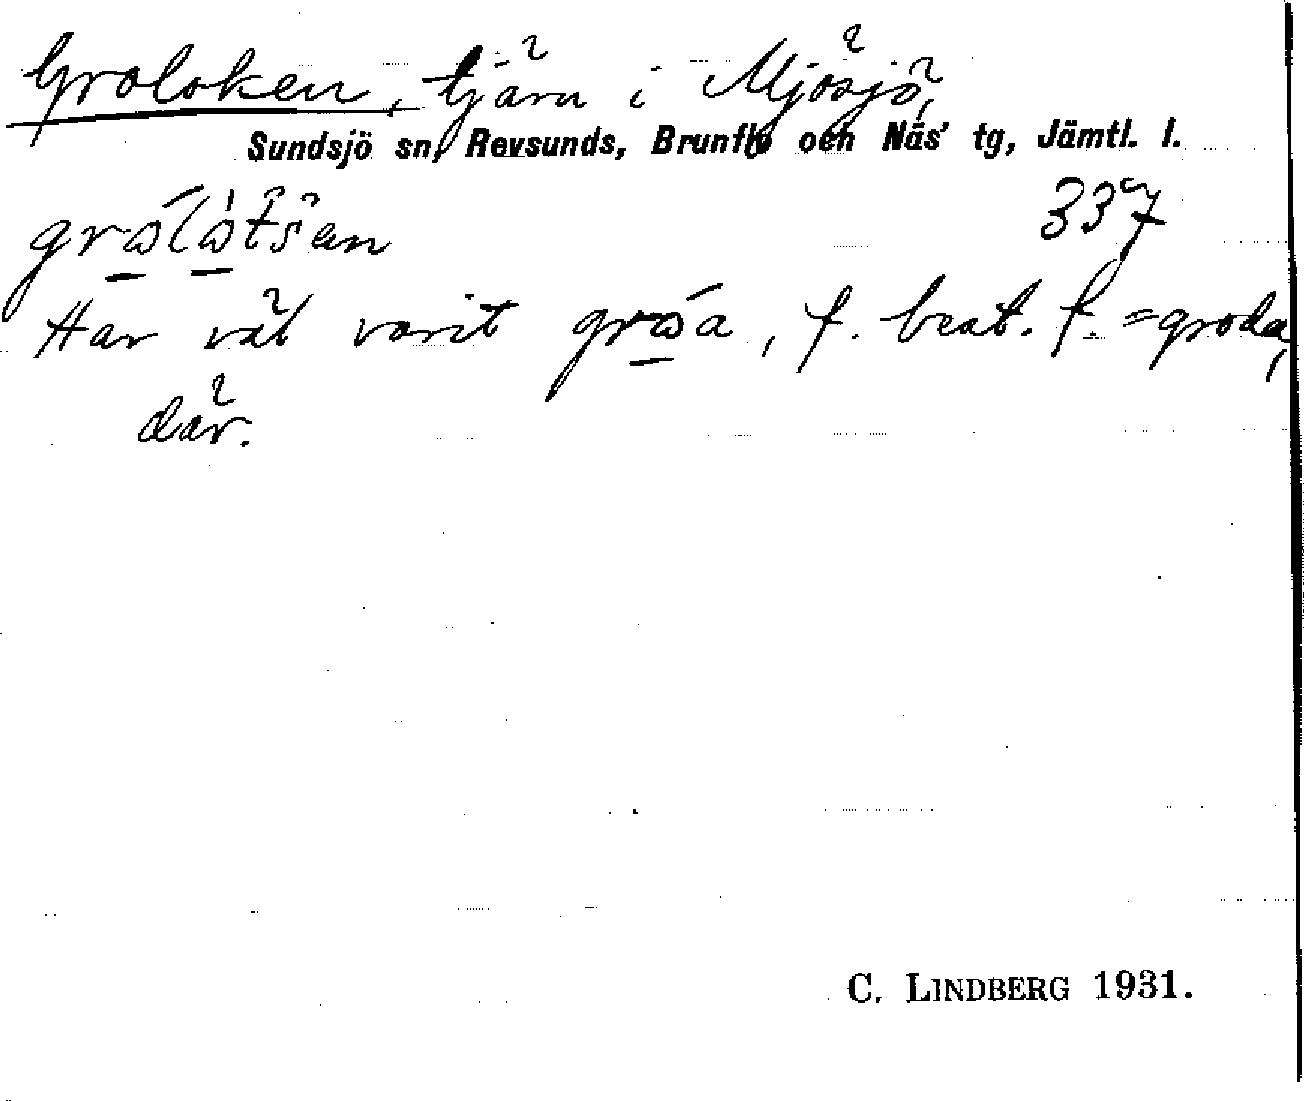 Groloken, tjärn i Mjösjö,
Sundsjö sn, Revsunds, Brunflo och Näs' tg, Jämtl. l.
337
Har väl varit gròa, f. best. f. = groda,
där.
C. LINDBERG 1931.